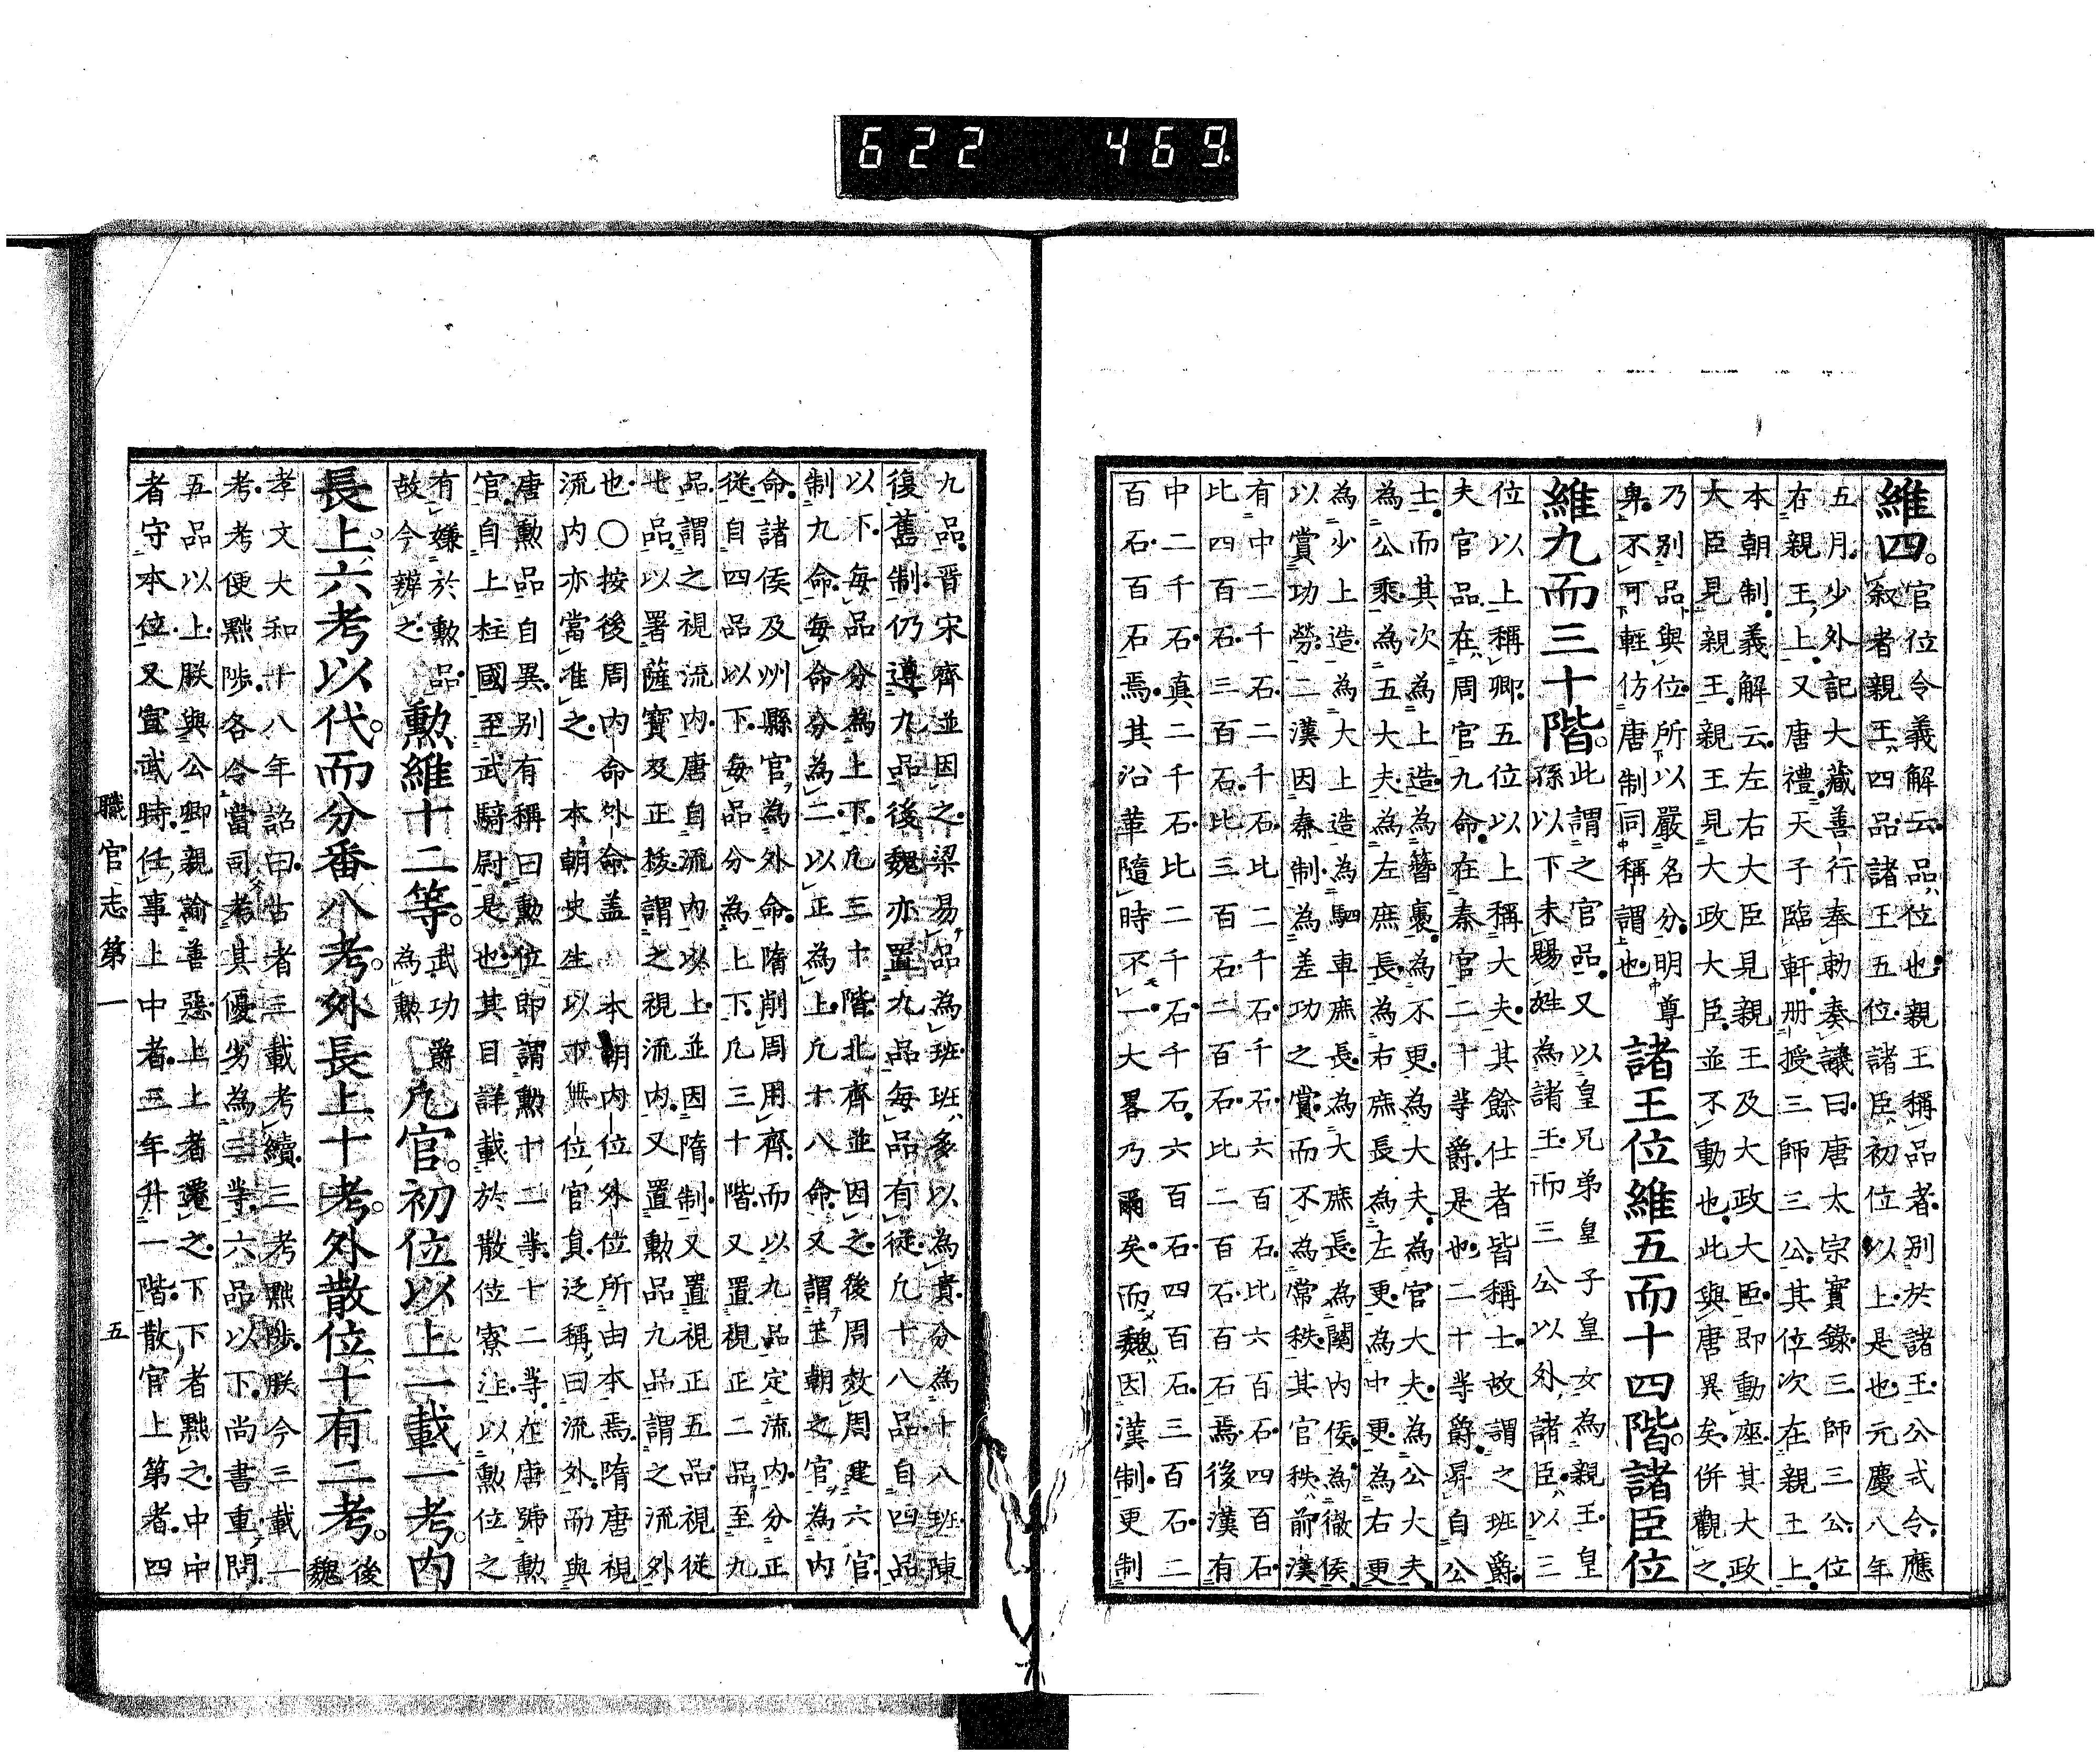 622 469
維四。
官位令義解云品ハ位也親王稱品者別於諸王公式令應
叙者親王ハ四品諸王五位諸臣初位以上是也元慶八年
五月少外記大藏善行奉勅奏議曰唐太宗實錄三師三公位
在親王上又唐禮天子臨軒册授三師三公其位次在親王上
本朝制義解云左右大臣見親王及大政大臣即動座其大政
大臣見親王親王見大政大臣並不動也此與唐異矣併觀之
乃別品與位所以嚴名分明尊
卑不可輕仿唐制同稱謂也
諸王位維五而十四階。諸臣位
維九而三十階。
此謂之官品又以皇兄弟皇子皇女為親王皇
孫以下未賜姓為諸王而三公以外諸臣ハ以三
位以上稱卿五位以上稱大夫其餘仕者皆稱士故謂之班爵
夫官品在周官九命在秦官二十等爵是也二十等爵昇自公
士而其次為上造為簪裊為不更為大夫為官大夫為公大夫
為公乘為五大夫為左庶長為右庶長為左更為中更為右更
為少上造為大上造為駟車庶長為大庶長為關内侯為徹侯
以賞功勞二漢因秦制為差功之賞而不為常秩其官秩前漢
有中二千石二千石比二千石千石六百石比六百石四百石
比四百石三百石比三百石二百石比二百石百石焉後漢有
中二千石真二千石比二千石千石六百石四百石三百石二
百石百石焉其沿革隨時不一大畧乃爾矣而魏因漢制更制
九品晋宋齊並因之梁易品為班班多以為貴分為十八班陳
復舊制仍遵九品後魏亦置九品每品有從凡十八品自四品
以下每品分為上下凡三十階北齊並因之後周效周建六官
制九命每命分為二以正為上凡十八命又謂王朝之官為内
命諸侯及州縣官為外命隋削周用齊而以九品定流内分正
從自四品以下每品分為上下凡三十階又置視正二品至九
品謂之視流内唐自流内以上並因隋制又置視正五品視從
七品以署薩寶及正祓謂之視流内又置勳品九品謂之流外
也〇按後周内命外命盖本朝内位外位所由本焉隋唐視
流内亦當准之本朝史生以下無位官負泛稱曰流外而與
唐勲品自異別有稱曰勲位即謂勲十二等十二等在唐號勲
官自上柱國至武騎尉是也其目詳載於散位寮注以勲位之
有嫌於勲品
故今辨之
勲維十二等。
武功爵
為勲
凡官。初位以上一載一考。内
長上。六考以代。而分番八考。外長上十考。外散位十有二考。
後
魏
孝文大和十八年詔曰古者三載考績三考黜陟朕今三載一
考考便黜陟各令當司考其優劣為三等六品以下尚書重問
五品以上朕與公卿親論善惡上上者遷之下下者黜之中中
者守本位又宣武時任事上中者三年升一階散官上第者四
職官志第一 五